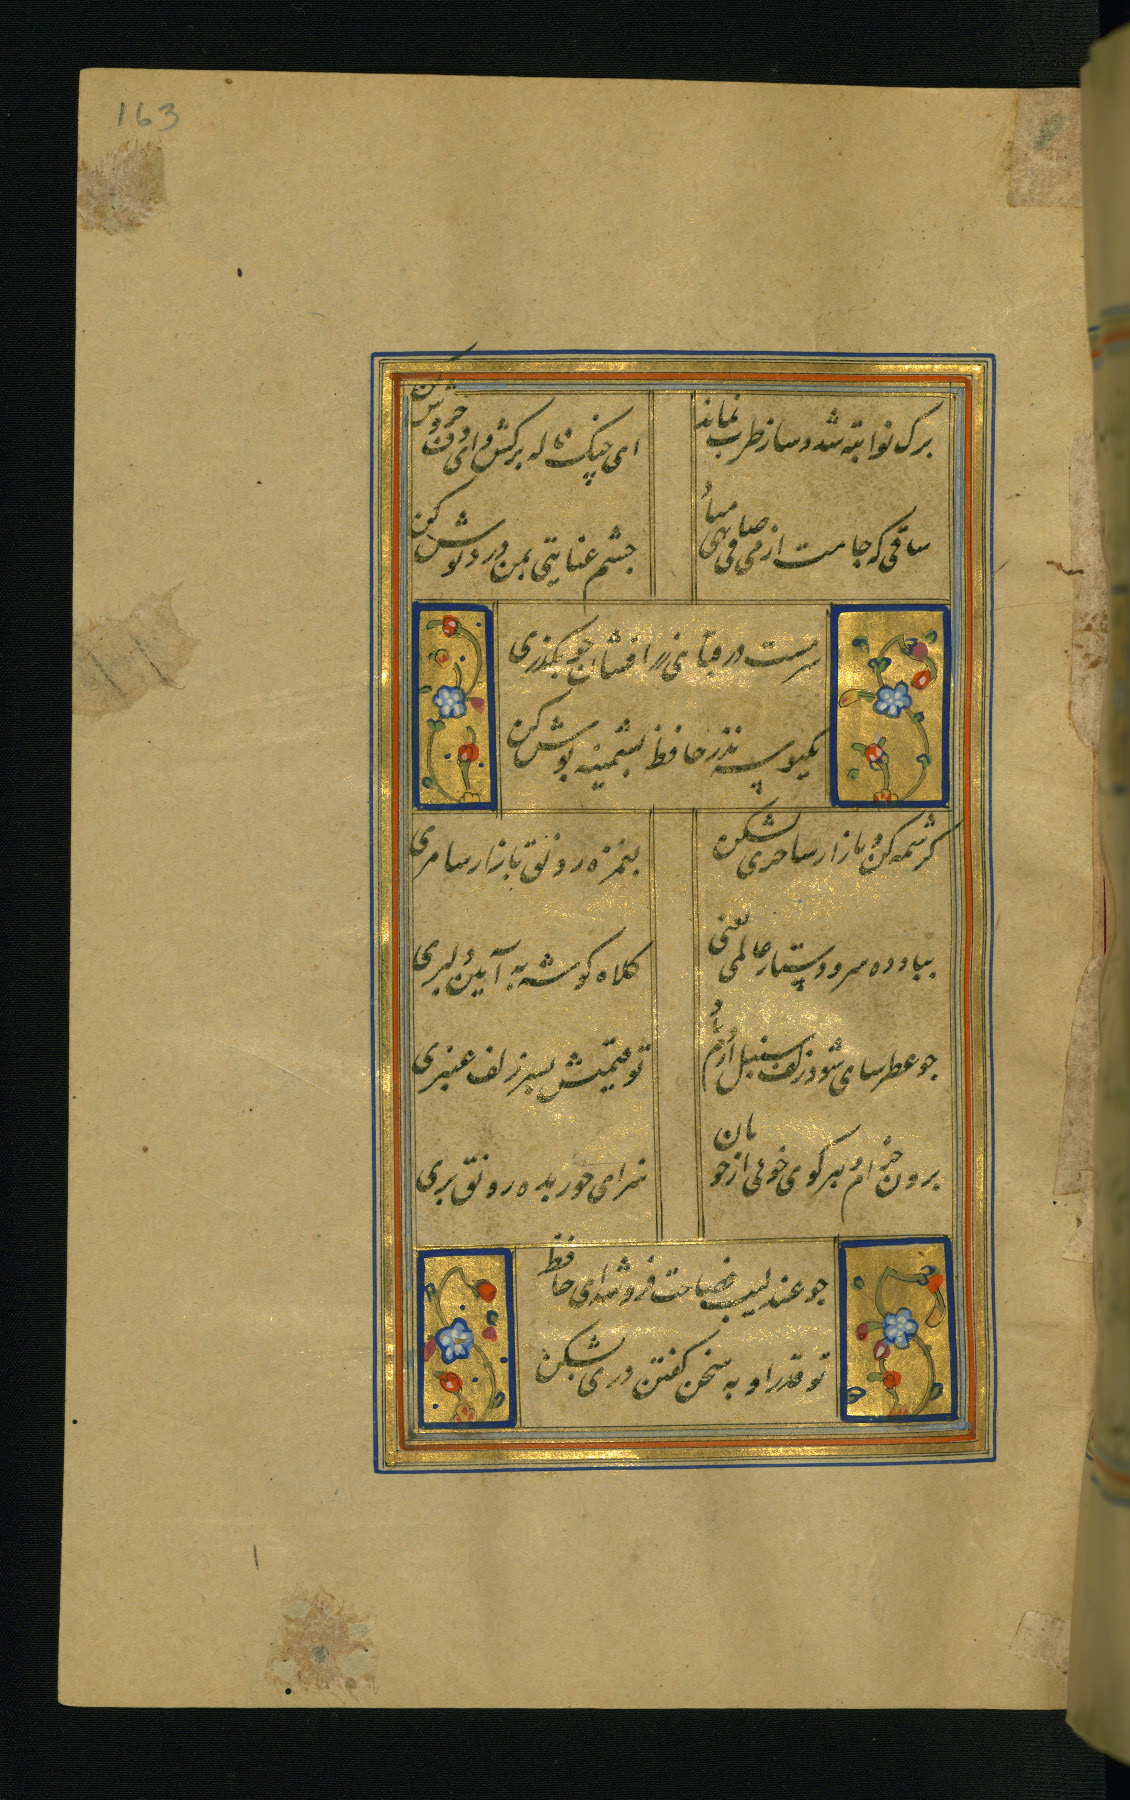 163
برک نوا تبه شد و ساز طرب نماند
ای چنک ناله برکش و ای دف خروش کن
ساقی که جامت از می صافی تهی مباد
جشم عنایتی بمن درد نوش کن
سرمست در قبای زر افشان جو بکذری
یکبوسه نذر حافظ بشمینه بوش کن
کرشمه کن و بازار ساحری بشکن
بغمزه رونق بازار سامری
بباد ده سر و دستار عالمی یعنی
کلاه کوشه به آیین دلبری
جو عطرسای شود زلف سنبل از دم باد
تو قیمتش بسر زلف عنبری
برون خرام و ببر کوی خوبی از خوبان
سزای حور بده رونق بری
جو عندلیب فصاحت فروشد ای حافظ
تو قدر او به سخن کفتن دری بشکن